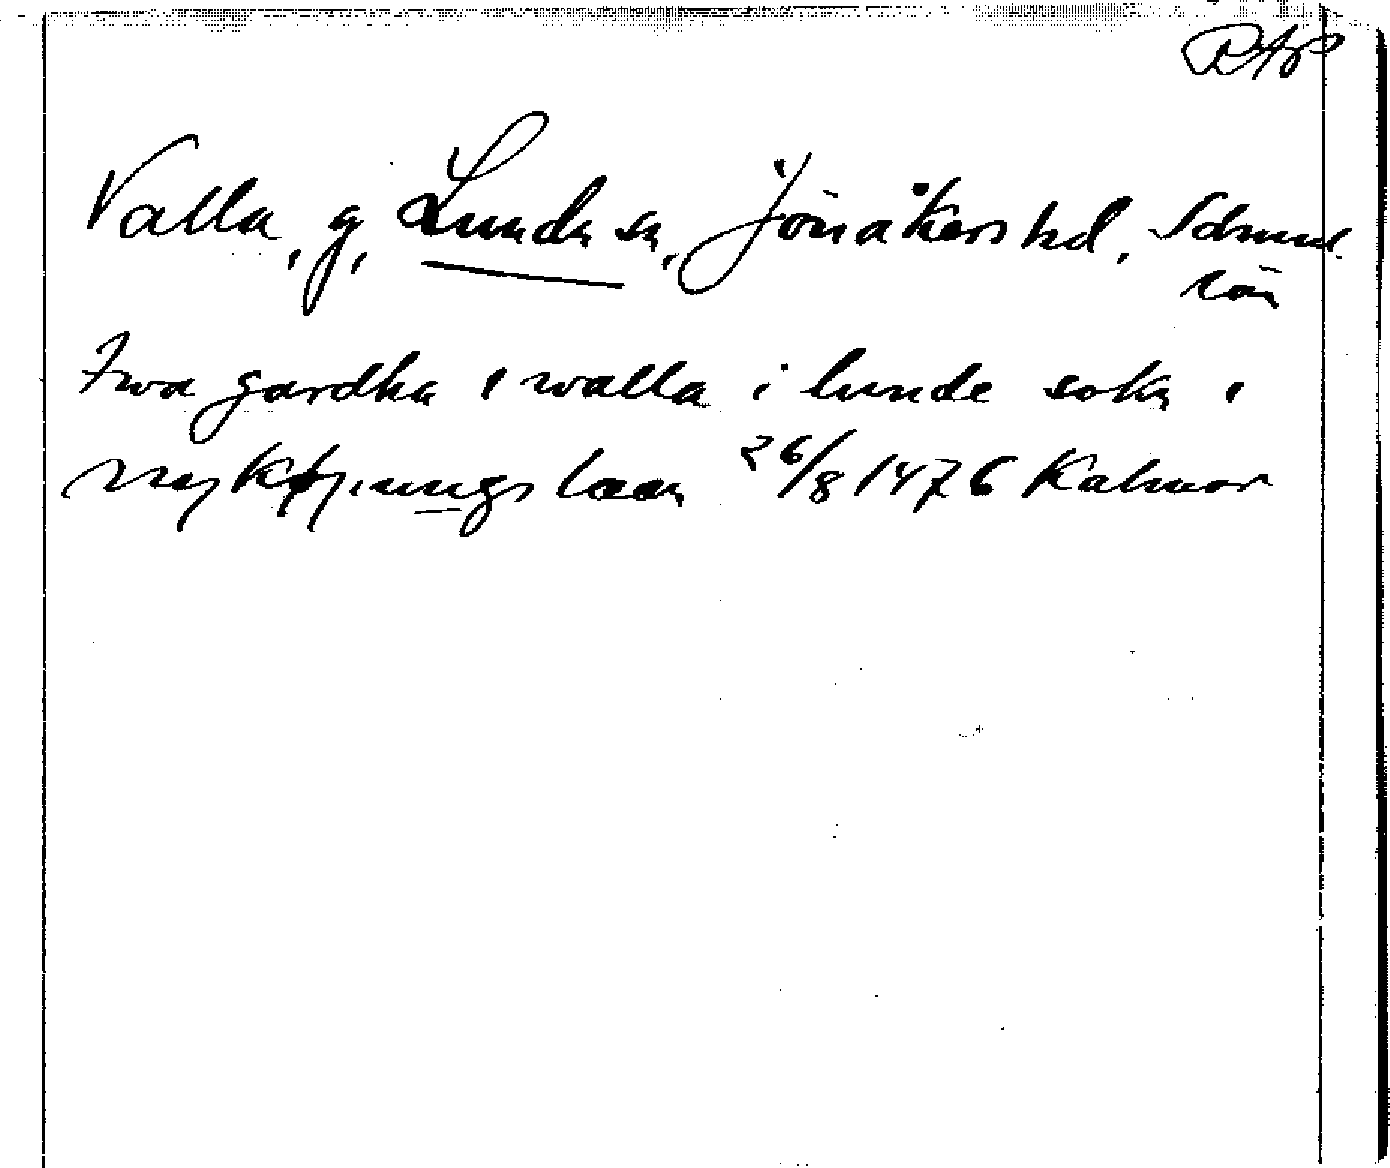 RAP
Valla, g, Lunda sn, Jönåkers hd, Södermanl
län
Twa gardha i walla i lunde sokn i
nyköpungs laan 26/8 1476 Kalmar